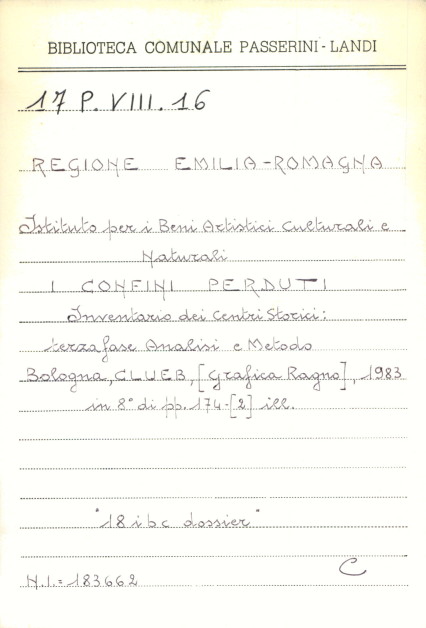 BIBLIOTECA COMUNALE PASSERINI-LANDI
17 P. VIII. 16
REGIONE EMILIA-ROMAGNA
Istituto per i Beni Artistici Culturali e
Naturali
I CONFINI PERDUTI
Inventario dei Centri Storici:
terza fase Analisi e Metodo
Bologna, CLUEB, [Grafica Ragno], 1983
in 8° di pp. 174-[2] ill.
"18 ibc dossier"
C
N.I.= 183662